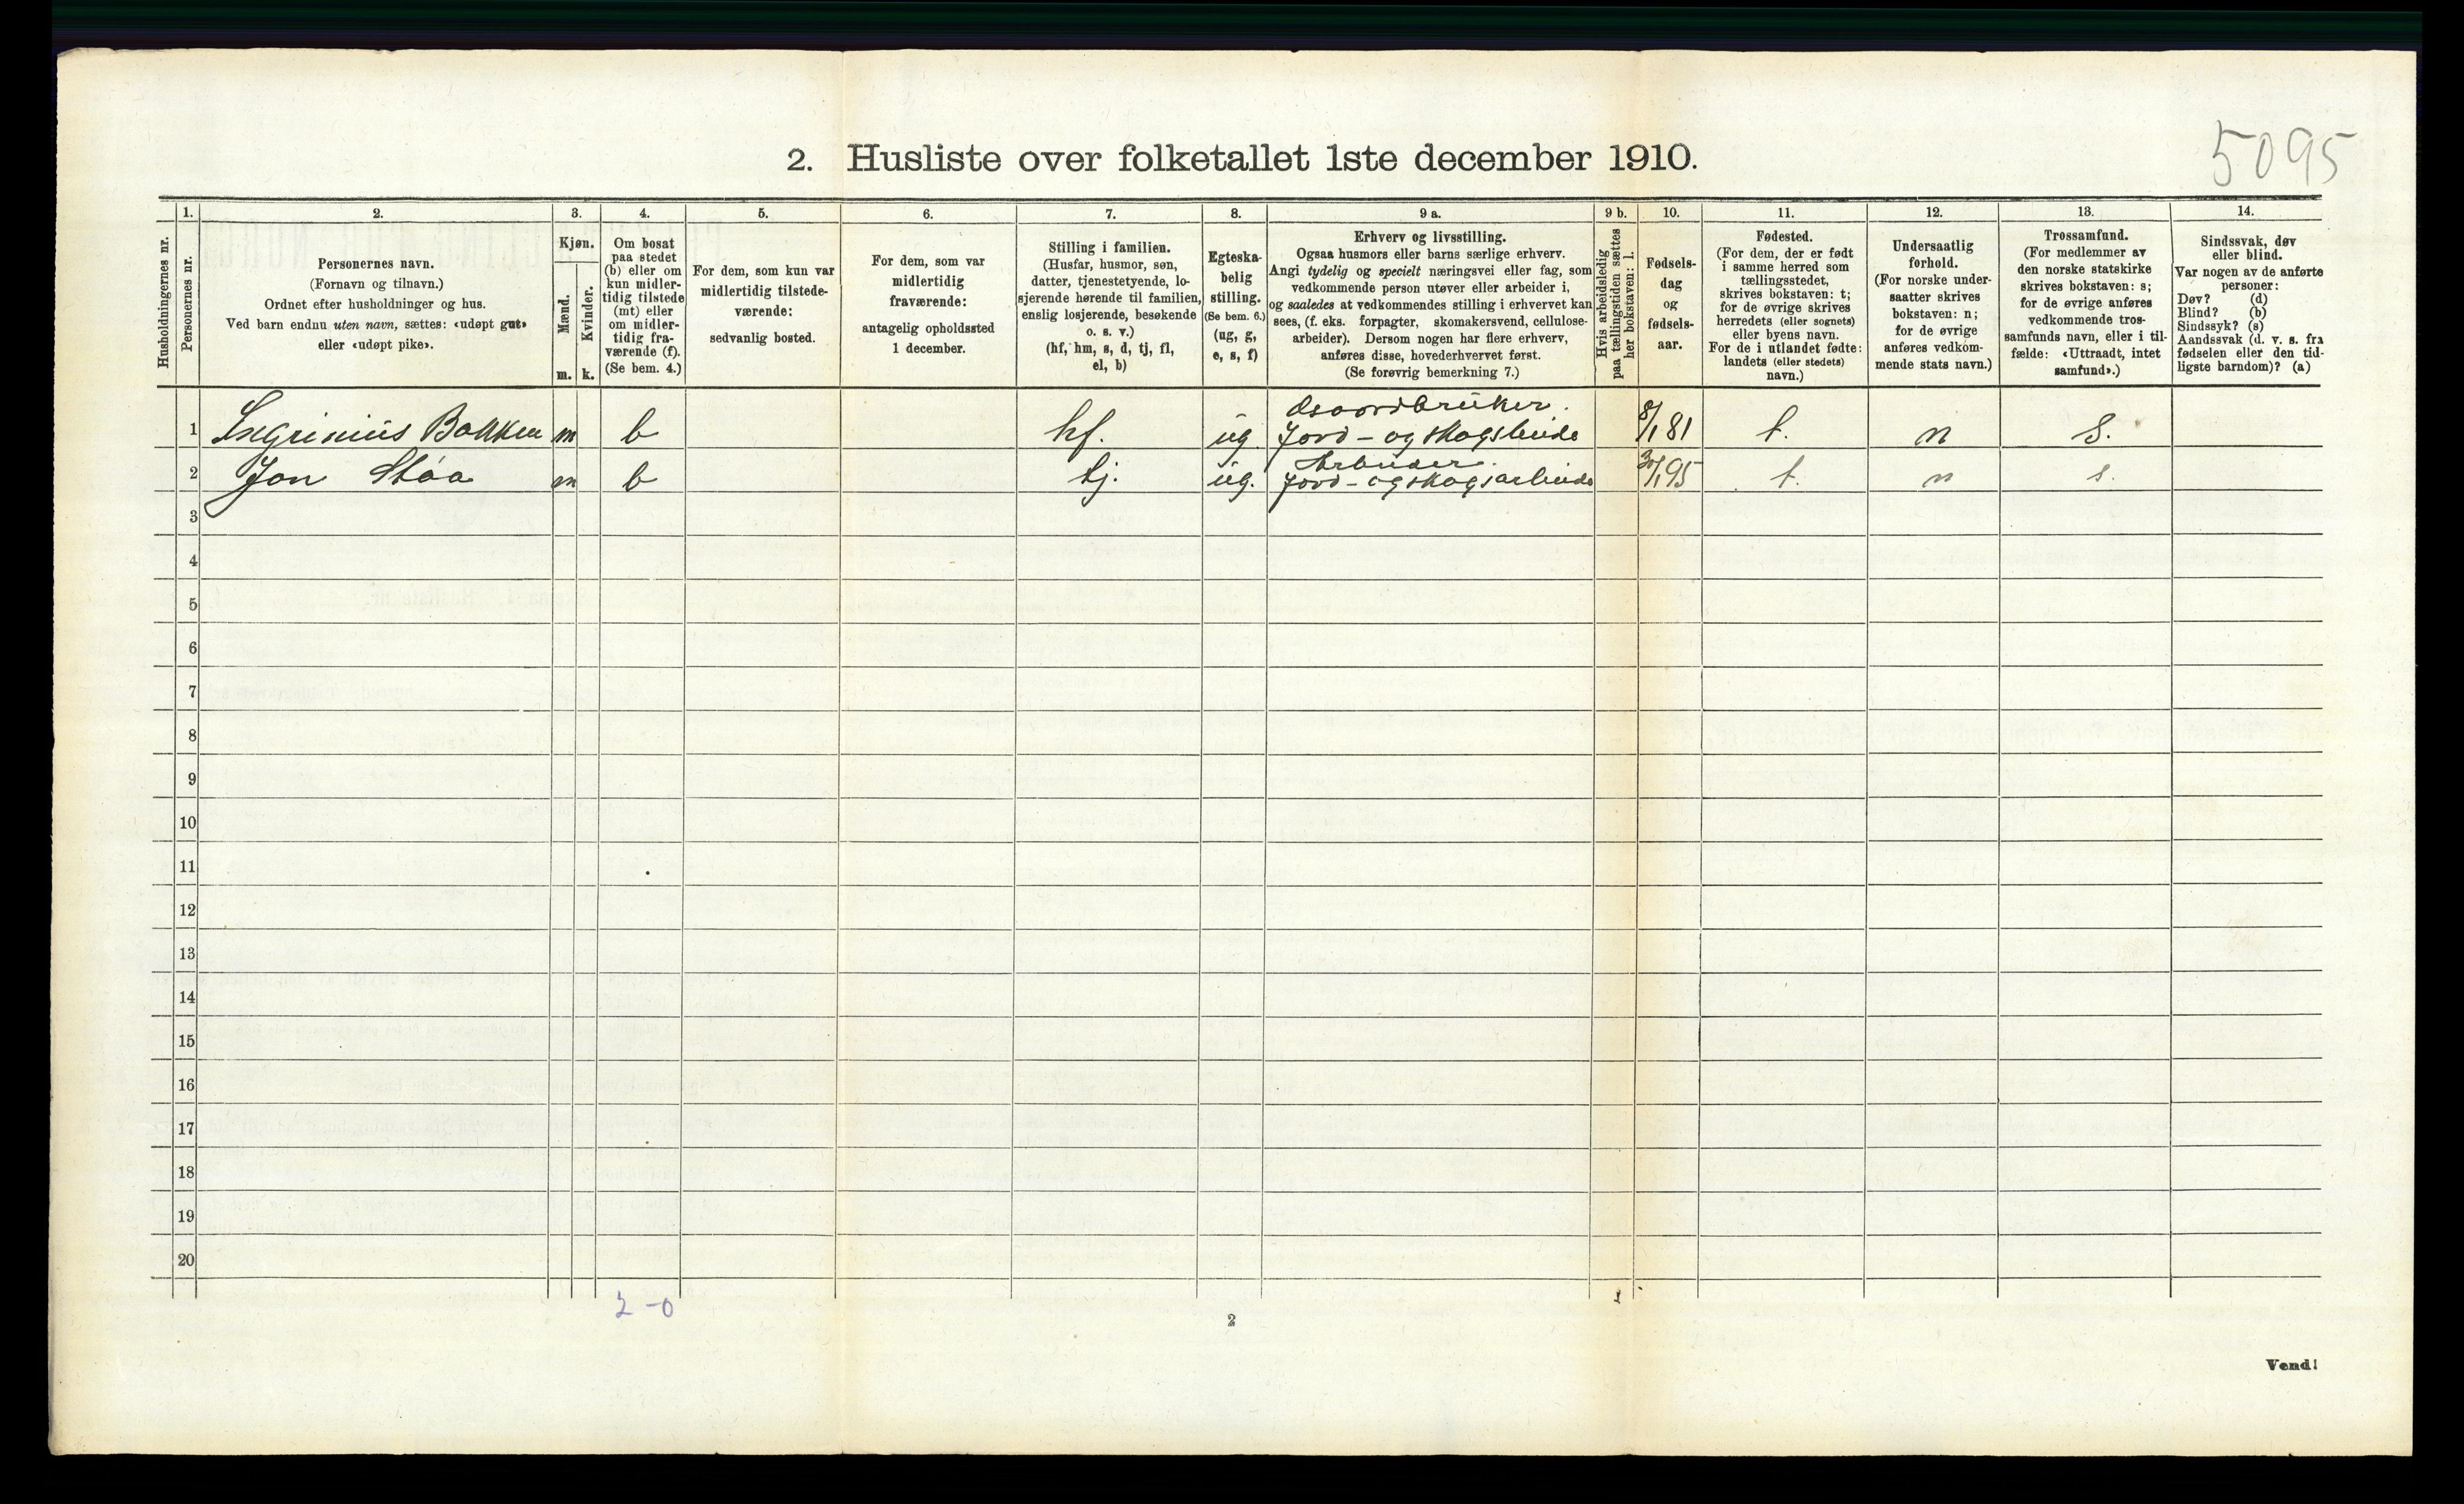 5095
2. Husliste over folketallet 1ste december 1910.
Husholdningernes nr.
1.
Personernes nr.
2.
Personernes navn.
(Fornavn og tilnavn.)
Ordnet efter husholdninger og hus.
Ved barn endnu uten navn, sættes: «udøpt gut»
eller «udøpt pike».
3.
Kjøn.
Mænd.
Kvinder.
m. k.
4.
Om bosat
paa stedet
(b) eller om
kun midler-
tidig tilstede
(mt) eller
om midler-
tidig fra-
værende (f).
(Se bem. 4.)
5.
For dem, som kun var
midlertidig tilstede-
værende:
sedvanlig bosted.
6.
For dem, som var
midlertidig
fraværende:
antagelig opholdssted
1 december.
7.
Stilling i familien.
(Husfar, husmor, søn,
datter, tjenestetyende, lo-
sjerende hørende til familien,
enslig losjerende, besøkende
o. s. v.)
(hf, hm, s, d, tj, fl,
el, b)
8.
Egteska-
belig
stilling.
(Se bem. 6.)
(ug, g,
e, s, f)
9 a.
Erhverv og livsstilling.
Ogsaa husmors eller barns særlige erhverv.
Angi tydelig og specielt næringsvei eller fag, som
vedkommende person utøver eller arbeider i,
og saaledes at vedkommendes stilling i erhvervet kan
sees, (f. eks. forpagter, skomakersvend, cellulose-
arbeider). Dersom nogen har flere erhverv,
anføres disse, hovederhvervet først.
(Se forøvrig bemerkning 7.)
9 b.
Hvis arbeidsledig
paa tællingstiden sættes
her bokstaven: l.
10.
Fødsels-
dag
og
fødsels-
aar.
11.
Fødested.
(For dem, der er født
i samme herred som
tællingsstedet,
skrives bokstaven: t;
for de øvrige skrives
herredets (eller sognets)
eller byens navn.
For de i utlandet fødte:
landets (eller stedets)
navn.)
12.
Undersaatlig
forhold.
(For norske under-
saatter skrives
bokstaven: n;
for de øvrige
anføres vedkom-
mende stats navn.)
13.
Trossamfund.
(For medlemmer av
den norske statskirke
skrives bokstaven: s;
for de øvrige anføres
vedkommende tros-
samfunds navn, eller i til-
fælde: «Uttraadt, intet
samfund».)
14.
Sindssvak, døv
eller blind.
Var nogen av de anførte
personer:
Døv? (d)
Blind? (b)
Sindssyk? (s)
Aandssvak (d. v. s. fra
fødselen eller den tid-
ligste barndom)? (a)
1 Bakken m b hf. ug Jord- og skogsbruk 8/1 81 t. n s.
Arbeider
2 Jon Støa m b tj. ug. Jord- og skogsarbeide 30/1 95 t. n s.
3
4
5
6
7
8
9
10
11
12
13
14
15
16
17
18
19
20
2-0
2
Vend!